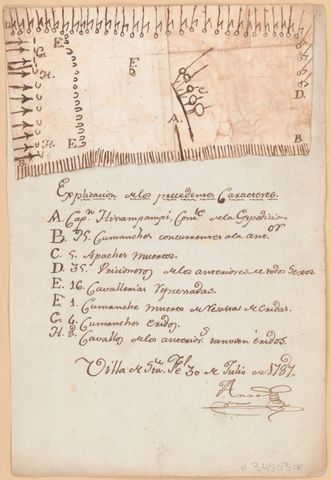 G.
E.
E.
H.
C.
D.
H.
E.
A.
B.
Explicacion de los precedentes Caracteres.
A. Cap.n Hisampampi, Com.te de la Expedicion
B. 95. Cumanches concurrentes a la ant.or
C. 5. Apaches Muertos.
D. 35. Pricioneros de los anteriores de todos Sexos.
E. 16. Cavallerias Represadas.
F. 1. Cumanche Muerto de Resultas de eridas.
G. 4. Cumanches Eridos.
H. 8. Cavallos de los anterior.s tanvien eridos.
Villa de Sta. Fe 30 de Julio de 1786.
Anza